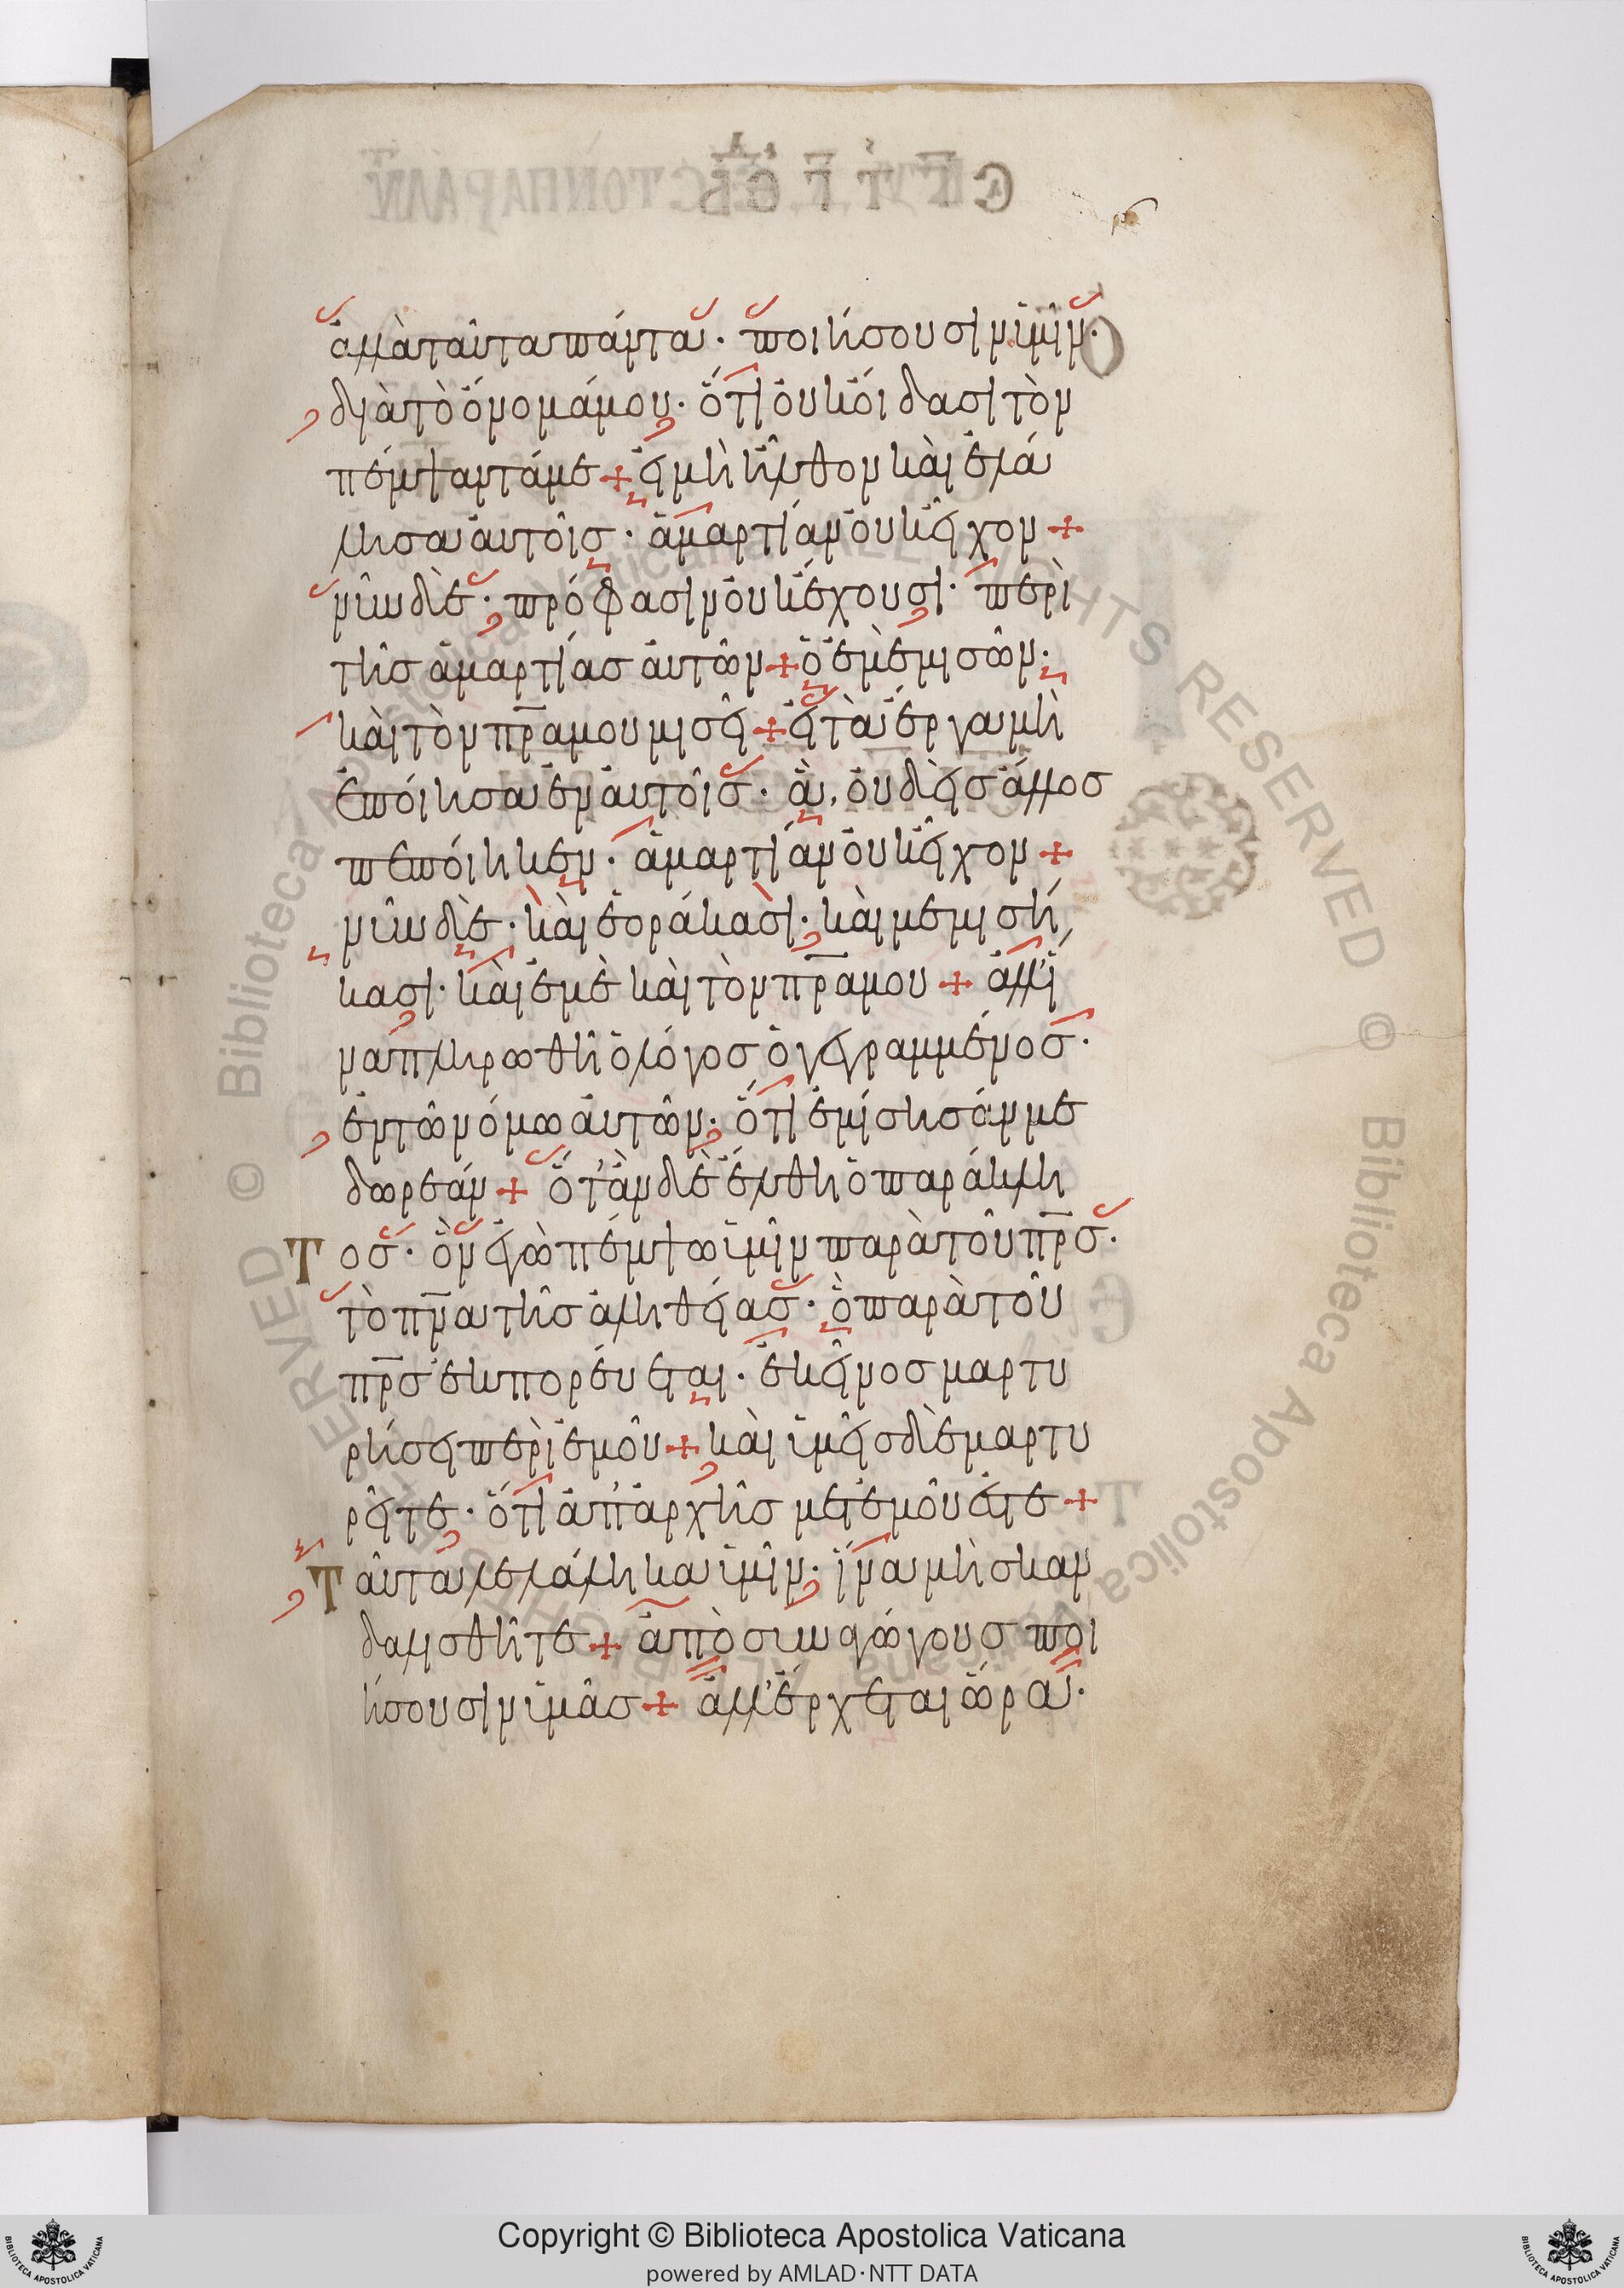 ἀλλὰ ταῦτα πάντα · ποιήσουσιν ὑμῖν ·
διὰ τὸ ὄνομά μου · ὅτι οὐκ οἴδασι τὸν
πέμψαντά με + εἰ μὴ ἦλθον καὶ ἐλά
λησα αὐτοῖς · ἁμαρτίαν οὐκ εἶχον +
νῦν δὲ · πρόφασιν οὐκ ἔχουσι · περὶ
τῆς ἁμαρτίας αὐτῶν + ὁ ἐμὲ μισῶν ·
καὶ τὸν πρα μου μισεῖ + εἰ τὰ ἔργα μὴ
ἐποίησα ἐν αὐτοῖς · ἃ, οὐδεὶς ἄλλος
πεποίηκεν · ἁμαρτίαν οὐκ εἶχον +
νῦν δὲ · καὶ ἑοράκασι · καὶ μεμισή
κασι · καὶ ἐμὲ καὶ τὸν πρα μου + ἀλλ' ἵ
να πληρωθῆ ὁ λόγος ὁ γεγραμμένος ·
ἐν τῶ νόμω αὐτῶν · ὅτι ἐμίσησάν με
δωρεάν + ὅτ' ἂν δὲ ἔλθη ὁ παράκλη
Τος · ὃν ἐγὼ πέμψω ὑμῖν παρὰ τοῦ πρς ·
τὸ πνα τῆς ἀληθείας · ὃ παρὰ τοῦ
πρς ἐκπορεύεται · ἐκεῖνος μαρτυ
ρήσει περὶ ἐμοῦ + καὶ ὑμεῖς δὲ μαρτυ
ρεῖτε · ὅτι ἀπ' ἀρχῆς μετ' ἐμοῦ ἐστε +
Ταῦτα λελάληκα ὑμῖν · ἵνα μὴ σκαν
δαλισθῆτε + ἀποσυναγώγους ποι
ήσουσιν ὑμᾶς + ἀλλ' ἔρχεται ὥρα ·
Copyright © Biblioteca Apostolica Vaticana
powered by AMLAD·NTT DATA